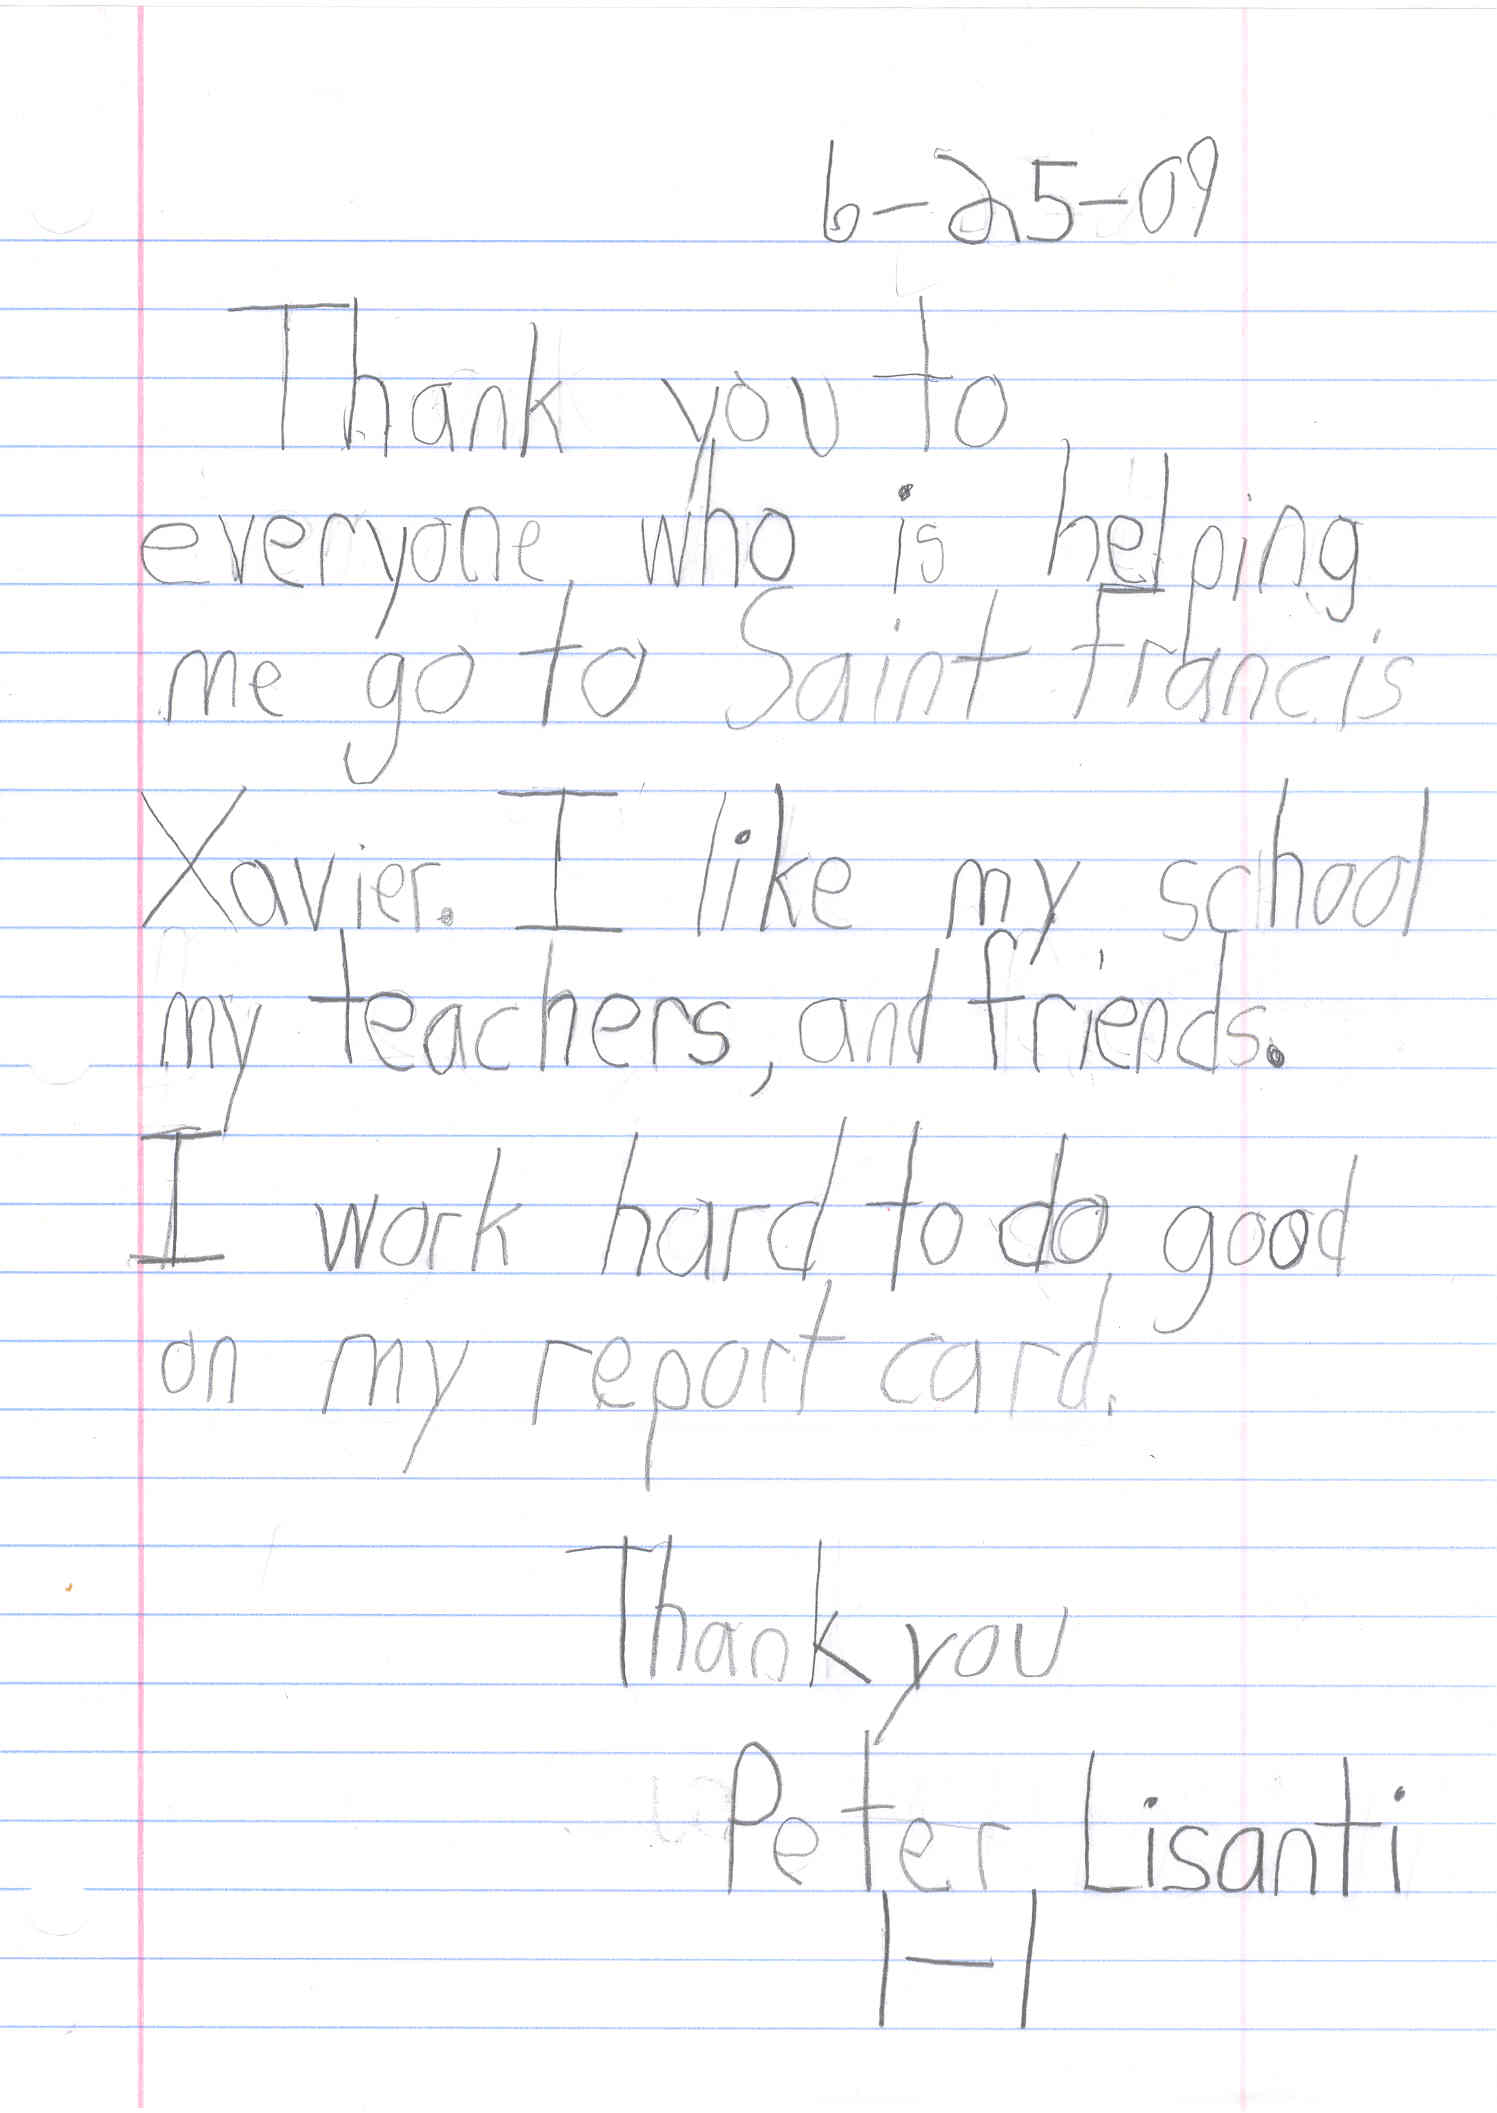 6-25-09
Thank you to
everyone who is helping
me go to Saint Francis
Xavier. I like my school
my teachers, and friends.
I work hard to do good
on my report card.
Thank you
Peter Lisanti
1-1